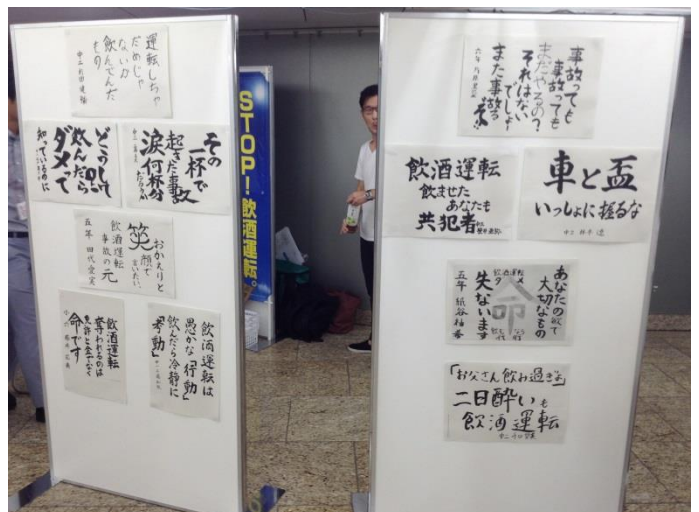 運転しちゃ
だめじゃ
ないか
飲んでんだ
もの
その
一杯で
起きた事故
涙何杯分
だろうか
どうして
飲んだら
ダメって
知っているのに
おかえりと
笑顔で
言いたい
飲酒運転
事故の元
五年
飲酒運転は
愚かな「行動」
飲んだら冷静に
「考動」
飲酒運転
奪われるのは
免許と金でなく
命です
STOP!飲酒運転。
事故っても
事故っても
まだやるの?
それはない
でしょ
また事故る
六年
飲酒運転
飲ませた
あなたも
共犯者
車と盃
いっしょに握るな
中二
あなたの
大切なもの
命
失ないます
五年
「お父さん飲み過ぎよ」
二日酔いも
飲酒運転